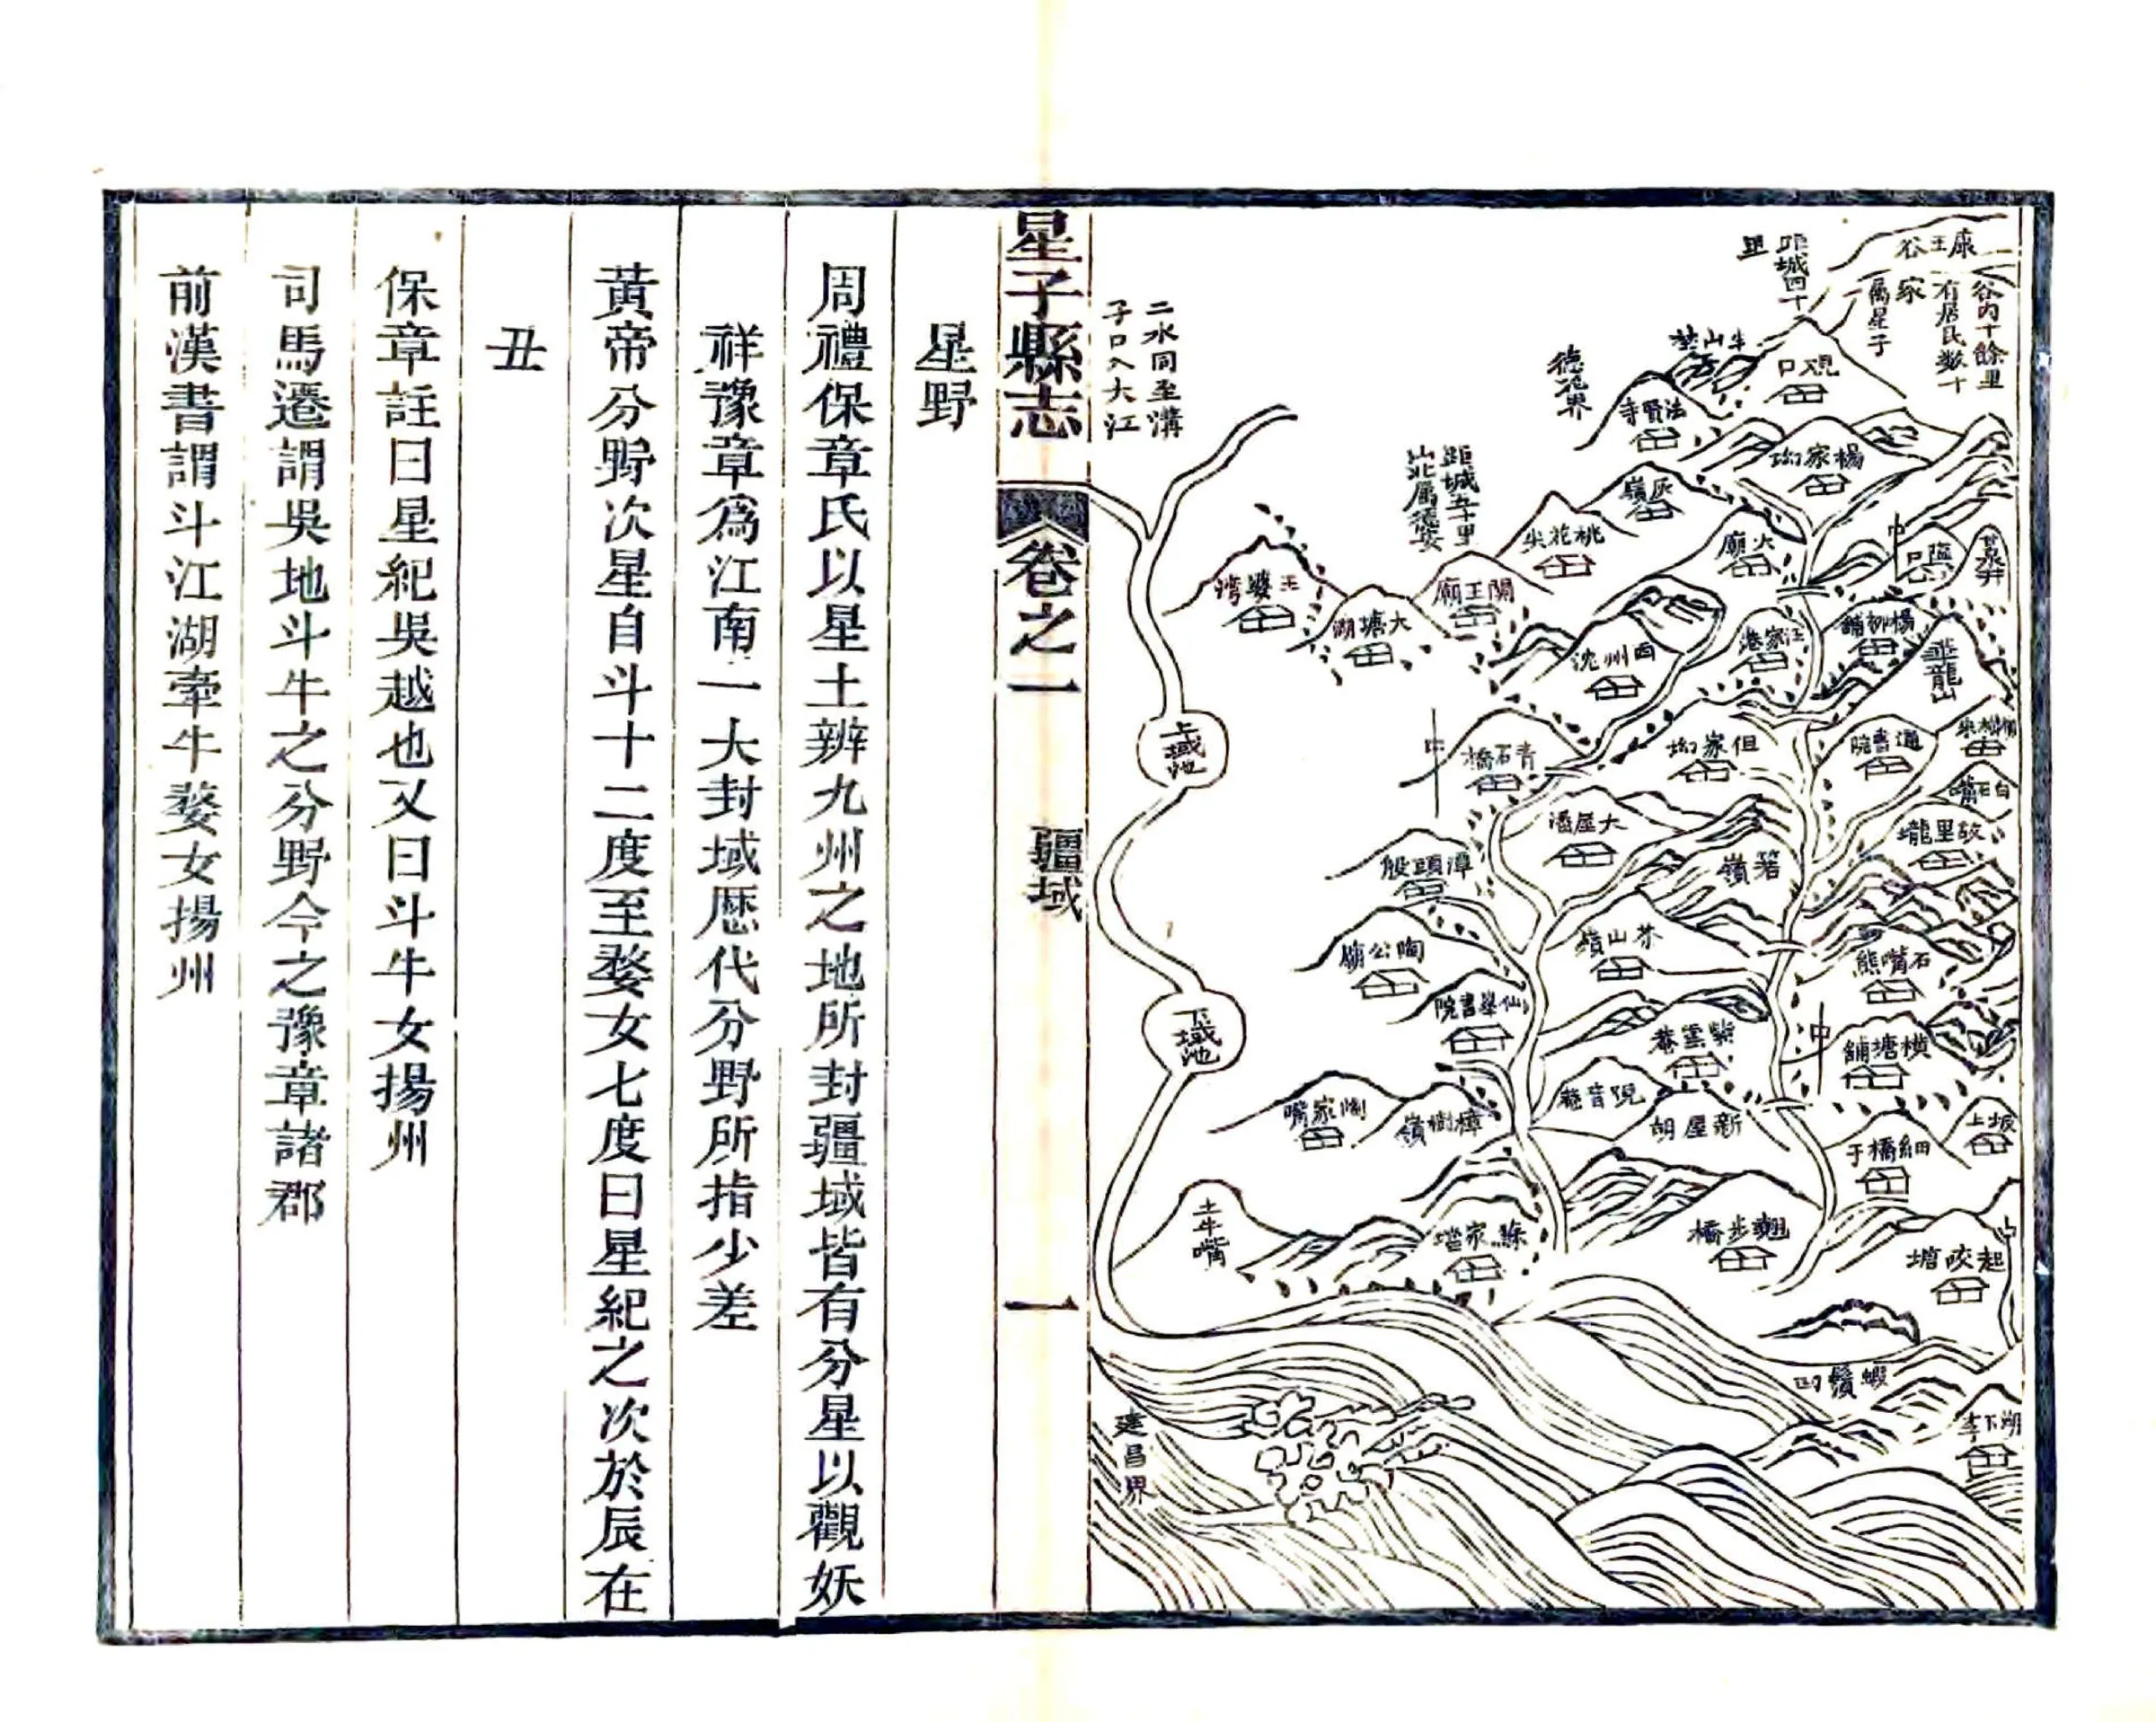 康王谷
谷內十餘里
有居民数十
家
屬星子
距城四十
里
觀口
牛山塹
法賢寺
德化界
楊家坳
灰嶺
桃花尖
距城五十里
山北屬德安
關王廟
大塘湖
王婆灣
二水同至溝
子口入大江
火廟
鹽口
甘泉井
楊柳鋪
汪家港
西州沈
黃龍山
通書院
但家坳
青石橋
白石嘴
故里壠
大屋潘
箬嶺
漳頭股
石嘴熊
芥山嶺
陶公廟
仙峯書院
橫塘鋪
紫雲菴
觀音菴
新屋胡
樟樹嶺
劉家嘴
坂上
細橋于
翹步橋
蘇家壋
土牛嘴
起咬塘
蝦鬚凹
湖下李
上域池
下域池
建昌界
星子縣志
卷之一
疆域
一
星野
周禮保章氏以星土辨九州之地所封疆域皆有分星以觀妖
祥豫章爲江南一大封域歷代分野所指少差
黃帝分野次星自斗十二度至婺女七度曰星紀之次於辰在
丑
保章註曰星紀吳越也又曰斗牛女揚州
司馬遷謂吳地斗牛之分野今之豫章諸郡
前漢書謂斗江湖牽牛婺女揚州